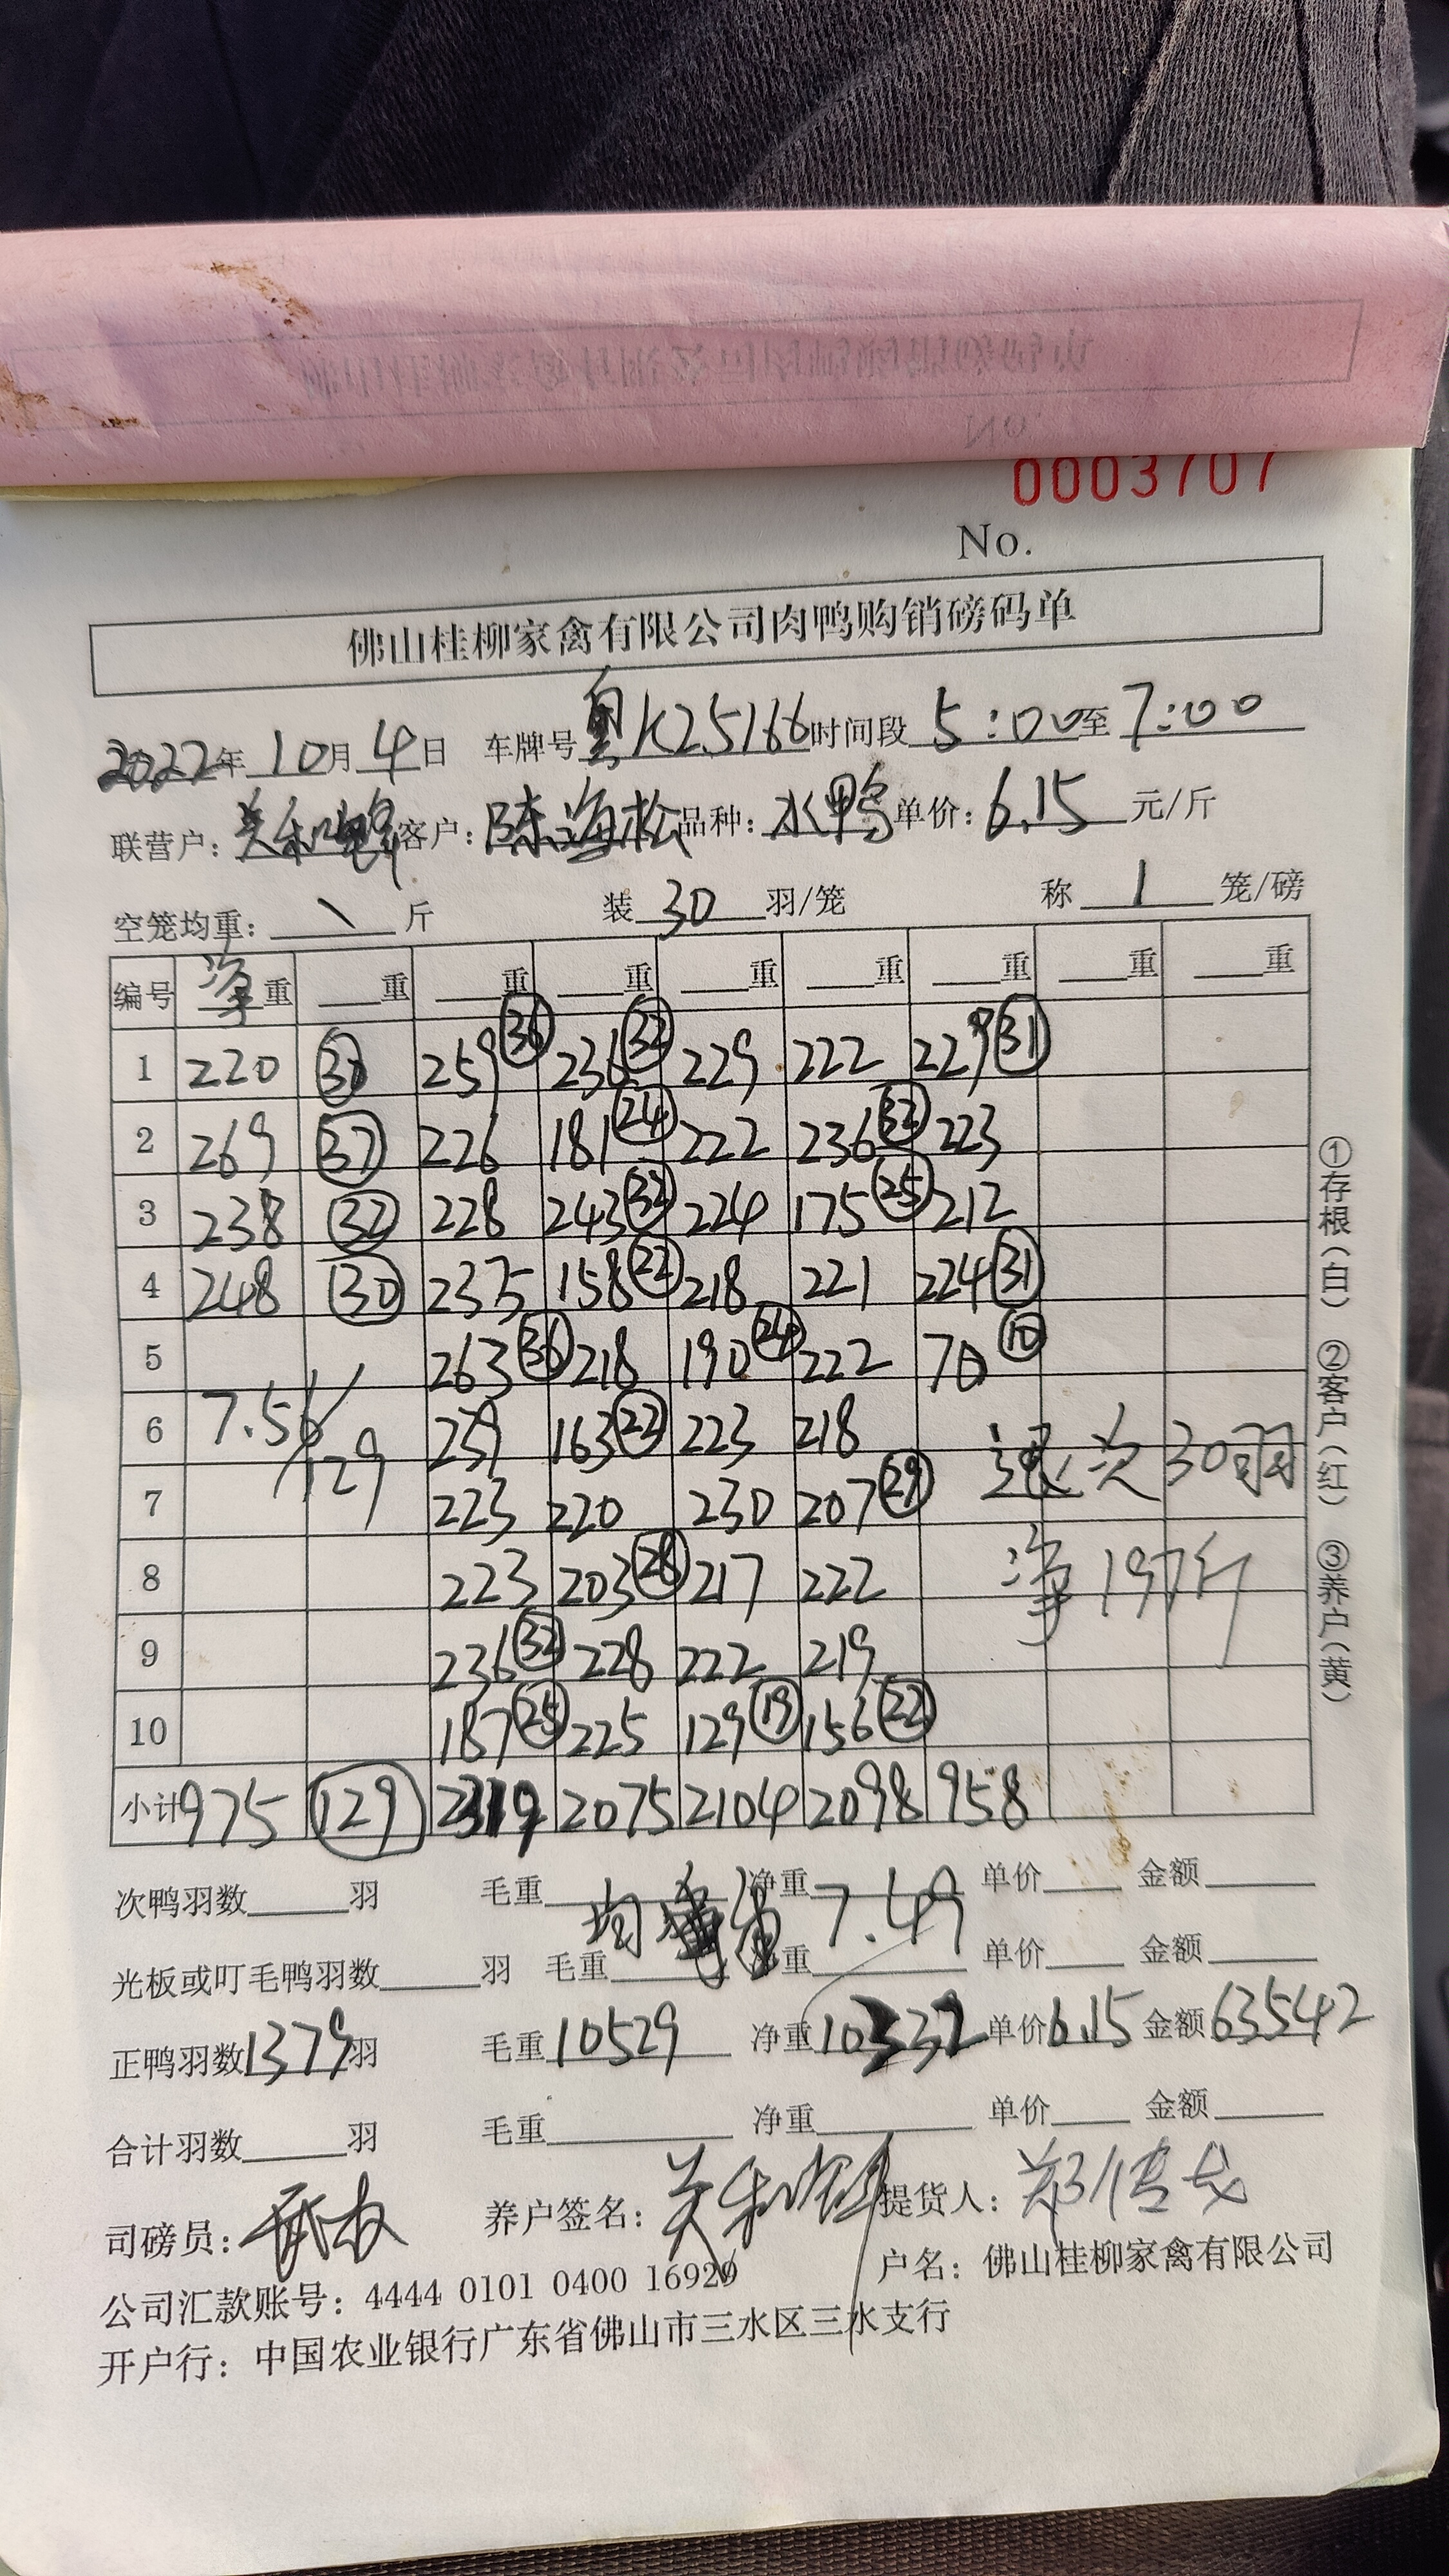 0003707
No.
佛山桂柳家禽有限公司肉鸭购销磅码单
2022年10月4日 车牌号粤K25166时间段5:00至7:00
联营户: 客户:陈海松品种:水鸭单价:6.15元/斤
空笼均重: \ 斤 装30羽/笼 称1笼/磅
编号 净重 重 重 重 重 重 重 重 重
1 220 259 36 236 32 229 222 229 31
2 269 37 226 181 24 222 236 32 223
3 238 32 228 243 32 224 175 25 212
4 248 30 235 158 22 218 221 224 31
5 263 36 218 190 24 222 70 10
6 7.56/129 163 22 223 218 退次30羽
7 223 220 230 207 29
8 223 203 28 217 222 净197斤
9 236 32 228 222 219
10 187 25 225 129 19 156 22
小计 975 129 2075 2104 2098 958
次鸭羽数 羽 毛重 净重 单价 金额
均 7.49
光板或叮毛鸭羽数 羽 毛重 净重 单价 金额
正鸭羽数1379羽 毛重10529 净重10332 单价6.15 金额63542
合计羽数 羽 毛重 净重 单价 金额
司磅员: 养户签名: 提货人:
公司汇款账号: 4444 0101 0400 16929 户名: 佛山桂柳家禽有限公司
开户行: 中国农业银行广东省佛山市三水区三水支行
①存根(白) ②客户(红) ③养户(黄)